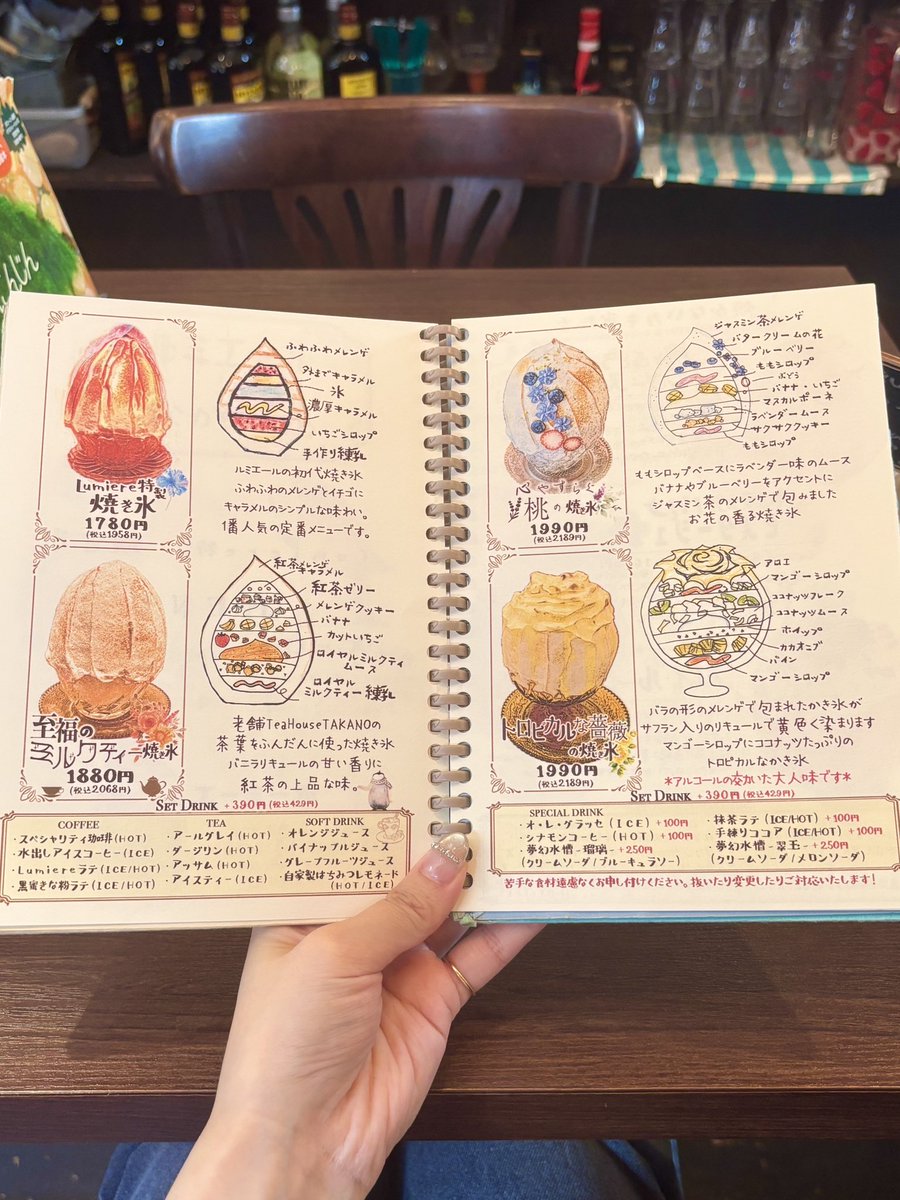 んじん
ふわふわメレンゲ
外まだキャラメル
氷
濃厚キャラメル
いちごシロップ
手作り練乳
Lumiere特製
焼き氷
1780円
(税込1958円)
ルミエールの初代焼き氷
ふわふわのメレンゲとイチゴに
キャラメルのシンプルな味わい。
1番人気の定番メニューです。
紅茶メレンゲ
キャラメル
紅茶ゼリー
メレンゲクッキー
バナナ
カットいちご
ロイヤルミルクティ
ムース
ロイヤル
ミルクティー練乳
至福の
ミルクティー焼き氷
1880円
(税込2068円)
老舗TeaHouseTAKANOの
茶葉をふんだんに使った焼き氷
バニラリキュールの甘い香りに
紅茶の上品な味。
ジャスミン茶メレンゲ
バタークリームの花
ブルーベリー
ももシロップ
ぶどう
バナナ・いちご
マスカルポーネ
ラベンダームース
サクサククッキー
ももシロップ
心やすらぐ
桃の焼き氷
1990円
(税込2189円)
ももシロップベースにラベンダー味のムース
バナナやブルーベリーをアクセントに
ジャスミン茶のメレンゲで包みました
お花の香る焼き氷
アロエ
マンゴーシロップ
ココナッツフレーク
ココナッツムース
ホイップ
カカオニブ
パイン
マンゴーシロップ
トロピカルな薔薇
の焼き氷
1990円
(税込2189円)
バラの形のメレンゲで包まれたかき氷が
サフラン入りのリキュールで黄色く染まります
マンゴーシロップにココナッツたっぷりの
トロピカルなかき氷
*アルコールの効いた大人味です*
SET DRINK +390円(税込429円)
COFFEE
・スペシャリティ珈琲(HOT)
・水出しアイスコーヒー(ICE)
・Lumiereラテ(ICE/HOT)
・黒蜜きな粉ラテ(ICE/HOT)
TEA
・アールグレイ(HOT)
・ダージリン(HOT)
・アッサム(HOT)
・アイスティー(ICE)
SOFT DRINK
・オレンジジュース
・パイナップルジュース
・グレープフルーツジュース
・自家製はちみつレモネード
(HOT/ICE)
SET DRINK +390円(税込429円)
SPECIAL DRINK
・オ・レ・グラッセ(ICE)+100円
・シナモンコーヒー(HOT)+100円
・夢幻水慴-瑠璃-+250円
(クリームソーダ/ブルーキュラソー)
・抹茶ラテ(ICE/HOT)+100円
・手練りココア(ICE/HOT)+100円
・夢幻水慴-翠玉-+250円
(クリームソーダ/メロンソーダ)
苦手な食材遠慮なくお申し付けください。抜いたり変更したりご対応いたします!